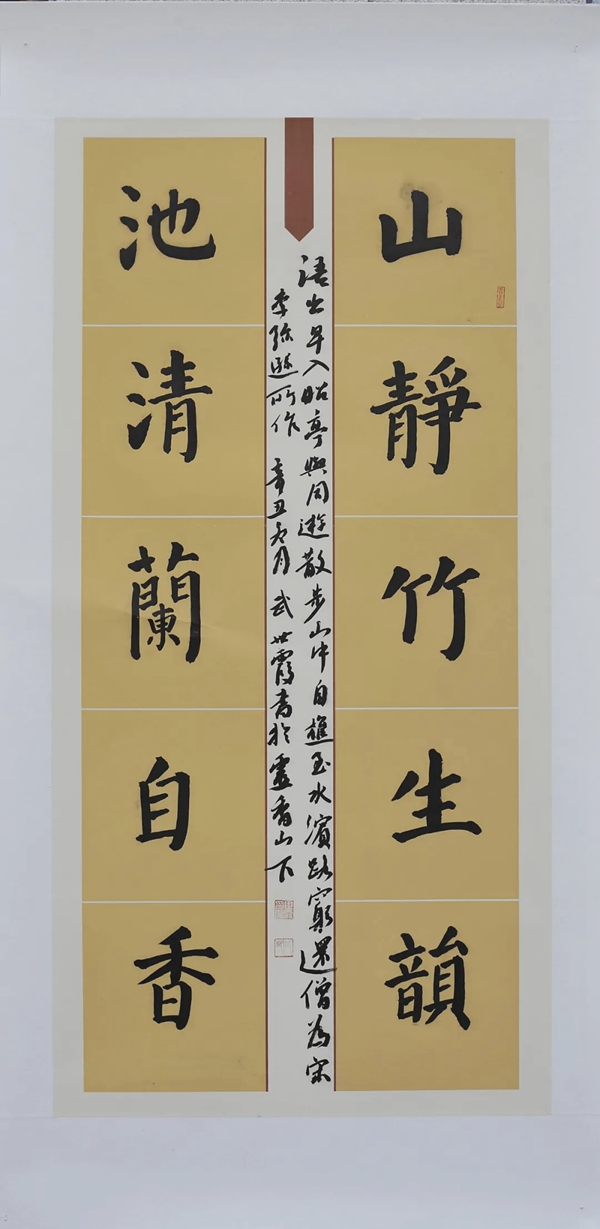 山靜竹生韻
池清蘭自香
語出早入昭亭與同遊散步山中自樵至水濱路窮還僧為宋
李弥遜所作 辛丑 月 武世霞書於靈香山下